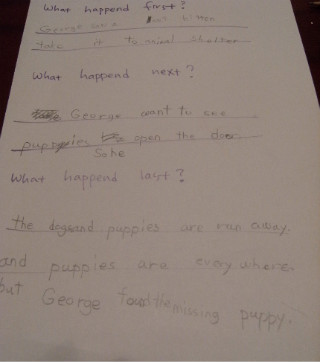 what happend first?
George and
take it to animal shelter
what happend next?
George want to see
puppies open the door.
Sohe
what happend last?
the dogsand puppies are ran away.
and puppies are every where.
but George found the missing puppy.